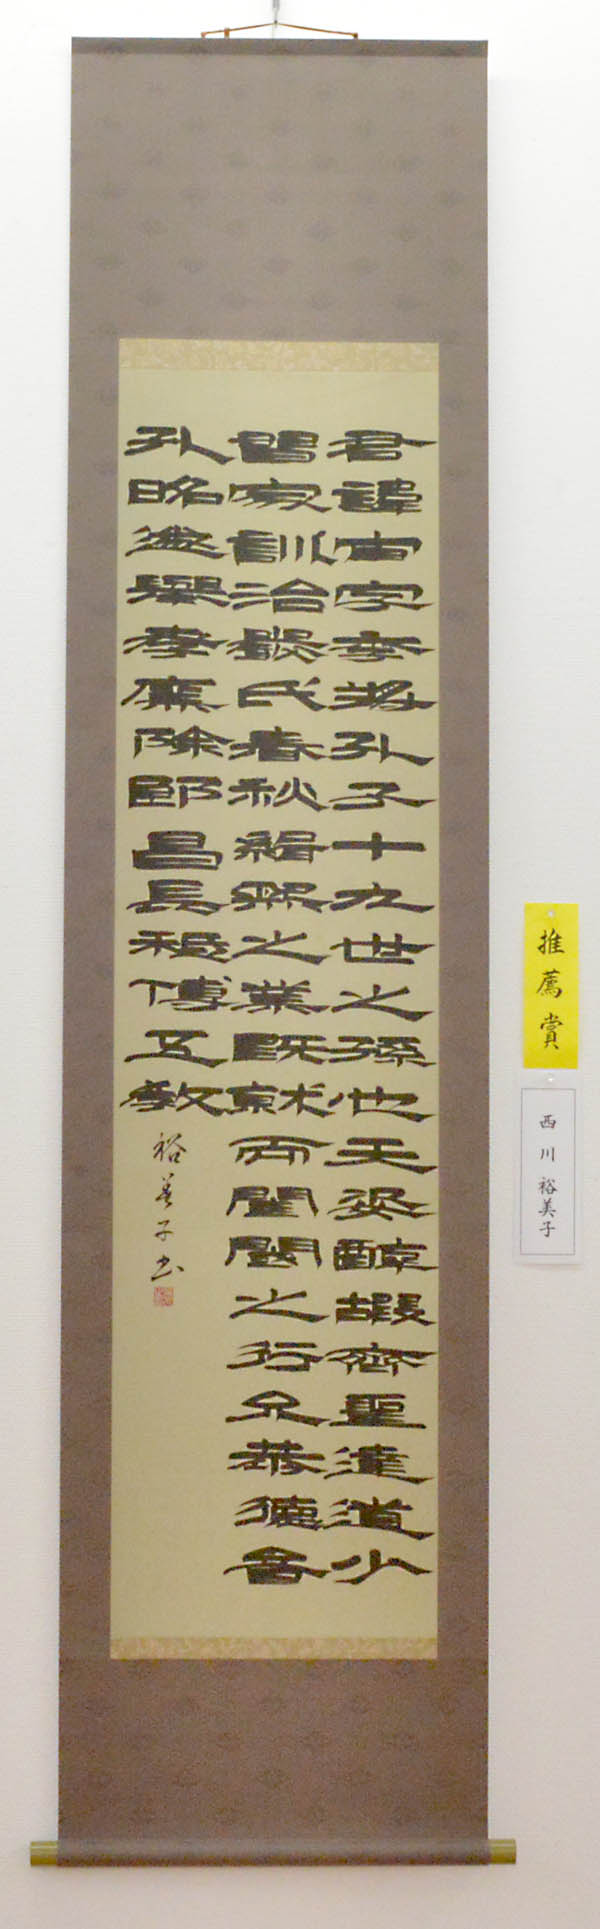 君諱宙字季將孔子十九世之孫也天姿醇嘏齊聖達道少
習家訓治嚴氏春秋緝熙之業既就而閨閾之行允恭德音
孔昭遂舉孝廉除郎昌長祗傳五教
裕美子書
推薦賞
西川裕美子